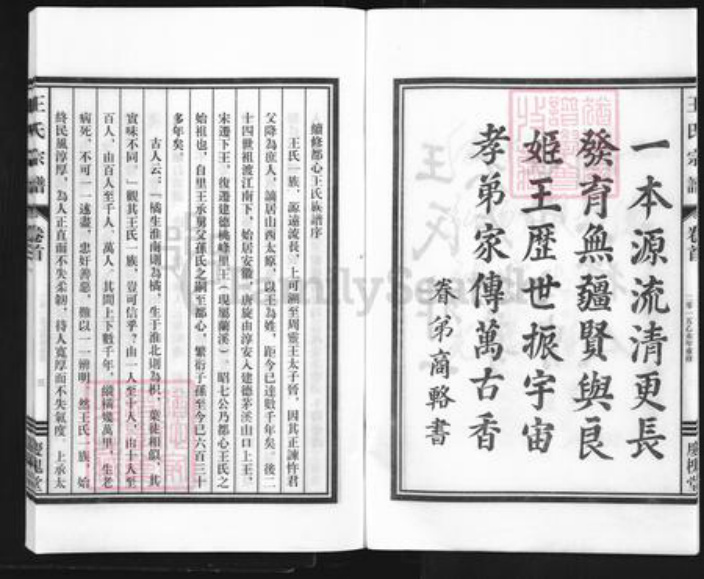 王氏宗譜
卷首
二零一五乙未年重修
慶槐堂
一本源流清更長
發育無疆賢與良
姬王歷世振宇宙
孝弟家傳萬古香
眷弟商輅書
續修都心王氏族譜序
王氏一族,源遠流長,上可溯至周靈王太子晉,因其正諫忤君
父降為庶人,謫居山西太原,以王為姓,距今已達數千年矣。後二
十四世祖渡江南下,始居安徽,唐旋由淳安入建德茅溪山口上王,
宋遷下王,復遷建德桃峰里王(現屬蘭溪)。昭七公乃都心王氏之
始祖也,自里王承舅父孫氏之嗣至都心,繁衍子孫至今已六百三十
多年矣。
古人云:「橘生淮南則為橘,生于淮北則為枳,葉徒相似,其
實味不同。」觀其王氏一族,豈可信乎?由一人至十人,由十人至
百人,由百人至千人、萬人,其間上下數千年,縱橫幾萬里,生老
病死,不可一一述盡,忠奸善惡,難以一一辨明。然王氏一族,始
終民風淳厚,為人正直而不失柔韌,待人寬厚而不失氣度,上承太
王氏宗譜
卷首
慶槐堂
FamilySearch